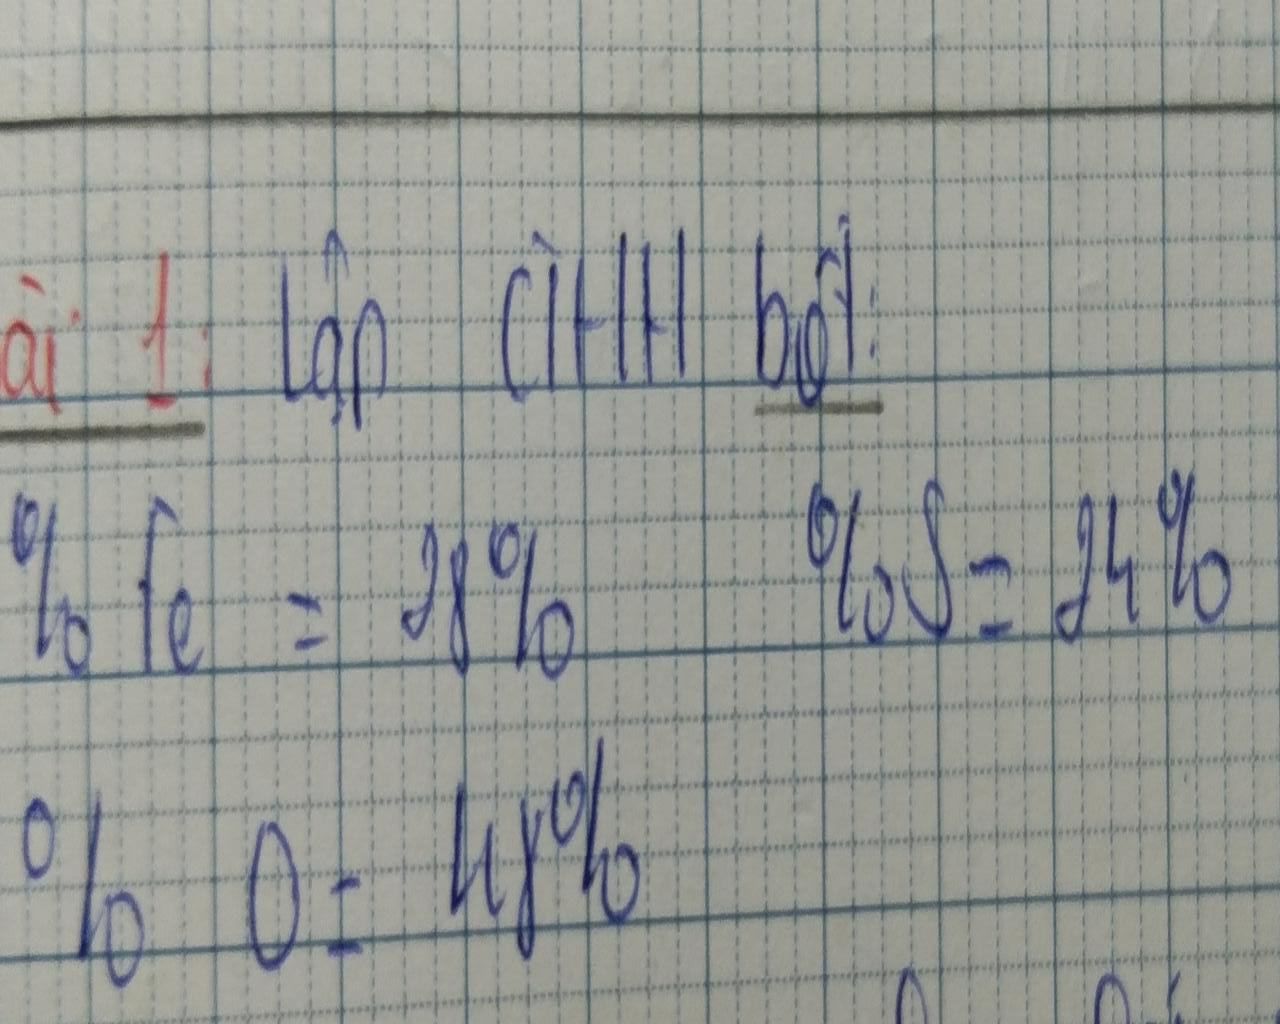 ài 1: Lập CTHH biết:
% Fe = 28% %S = 24%
% O = 48%